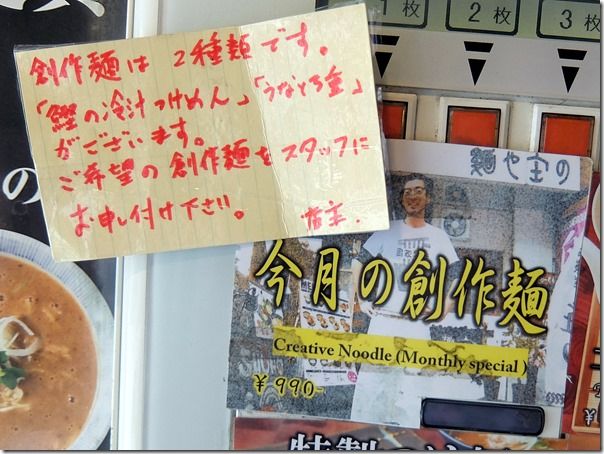 1枚
2枚
3枚
創作麺は 2種類です。
「鰹の冷汁つけめん」「うなとろ釜」
がございます。
ご希望の創作麺をスタッフに
お申し付け下さい。
店主.
の
麺や宝の
今月の創作麺
Creative Noodle (Monthly special)
¥990-
特製つけ